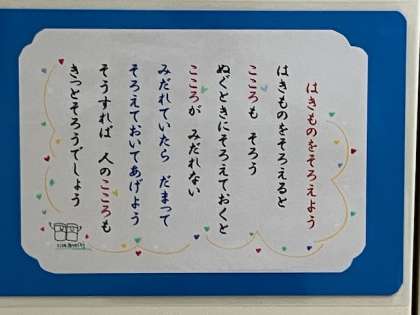 はきものをそろえよう
はきものをそろえると
こころも そろう
ぬぐときにそろえておくと
こころが みだれない
みだれていたら だまって
そろえておいてあげよう
そうすれば 人のこころも
きっとそろうでしょう